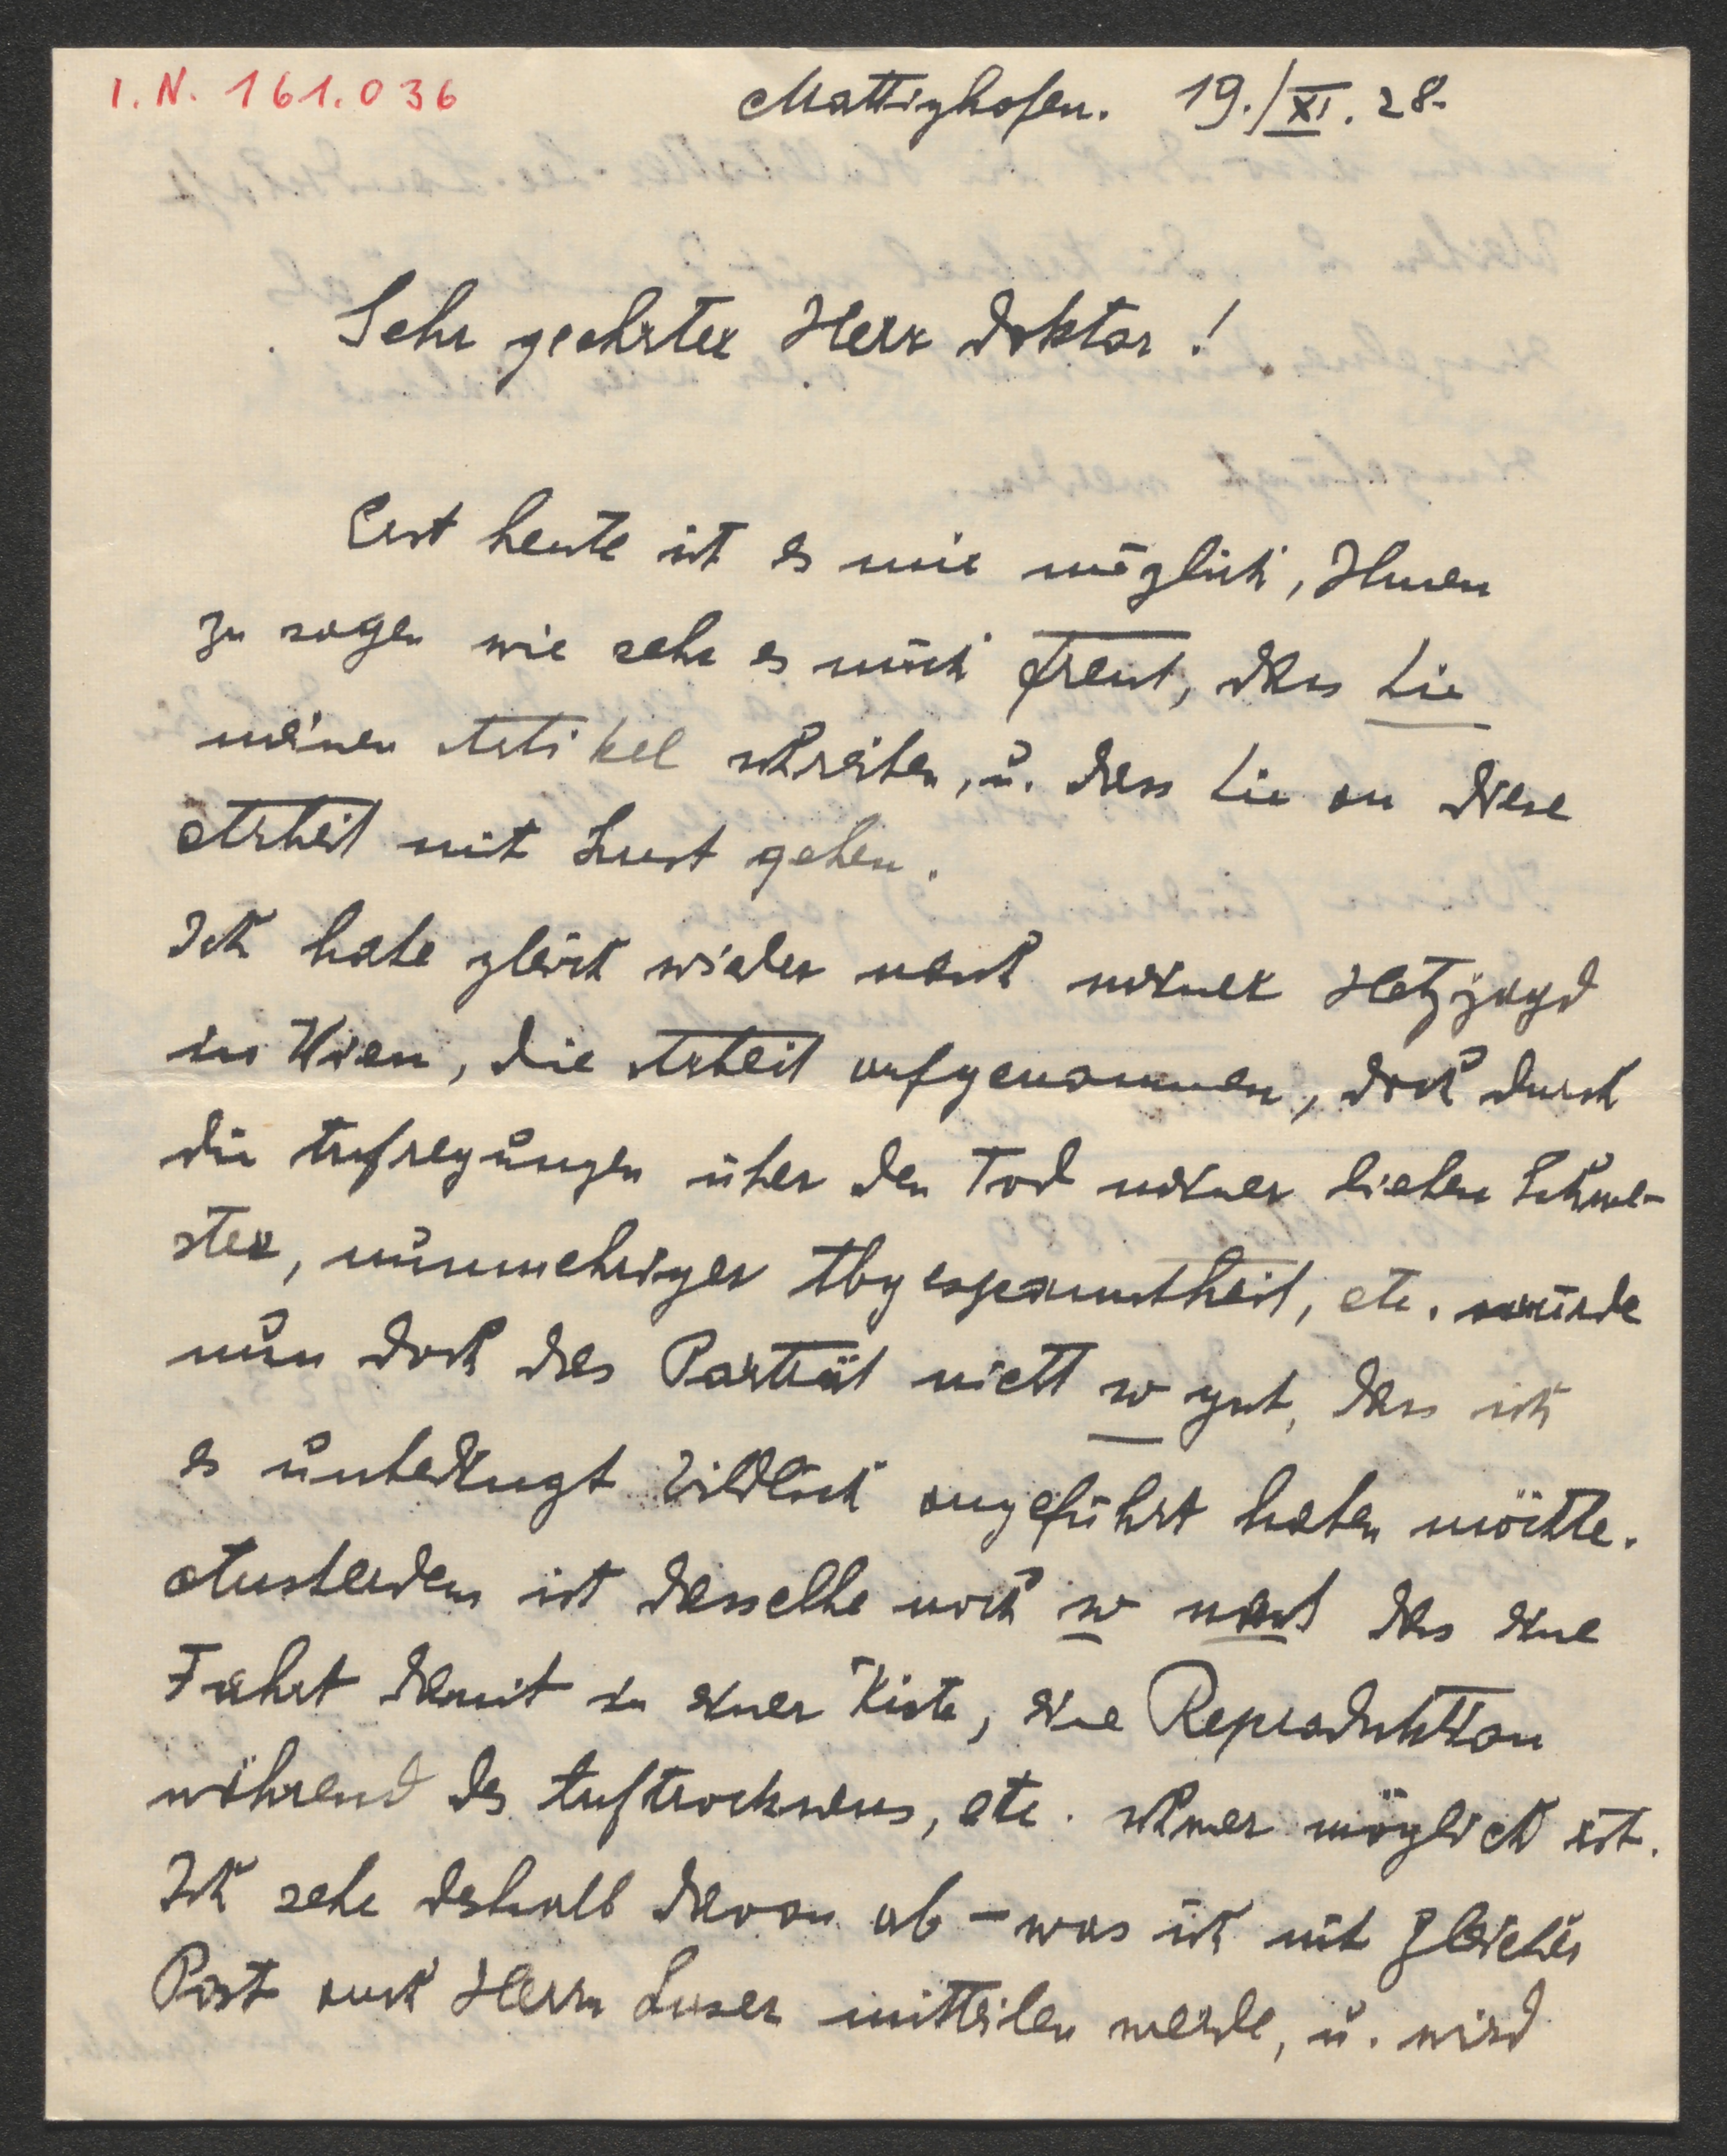 I. N. 161.036
Mattighofen. 19./XI. 28.
Sehr geehrter Herr Doktor!
Erst heute ist es mir möglich, Ihnen
zu sagen wie sehr es mich freut, dass Sie
meinen Artikel schreiben, u. dass Sie an diese
Arbeit mit Lust gehen.
Ich habe gleich wieder nach meiner Hetzjagd
in Wien, die Arbeit aufgenommen, doch durch
die Aufregungen über den Tod meiner lieben Schwe-
ster, nunmehriger Abgespanntheit, etc. wurde
nun doch das Porträt nicht so gut, dass ich
es unbedingt bildlich angeführt haben möchte.
Ausserdem ist dasselbe noch so nass das eine
Fahrt damit in einer Kiste, eine Reproduktion
während des Auftrocknens, etc. schwer möglich ist.
Ich sehe deshalb davon ab – was ich mit gleicher
Post auch Herrn Luser mitteilen werde, u. wird